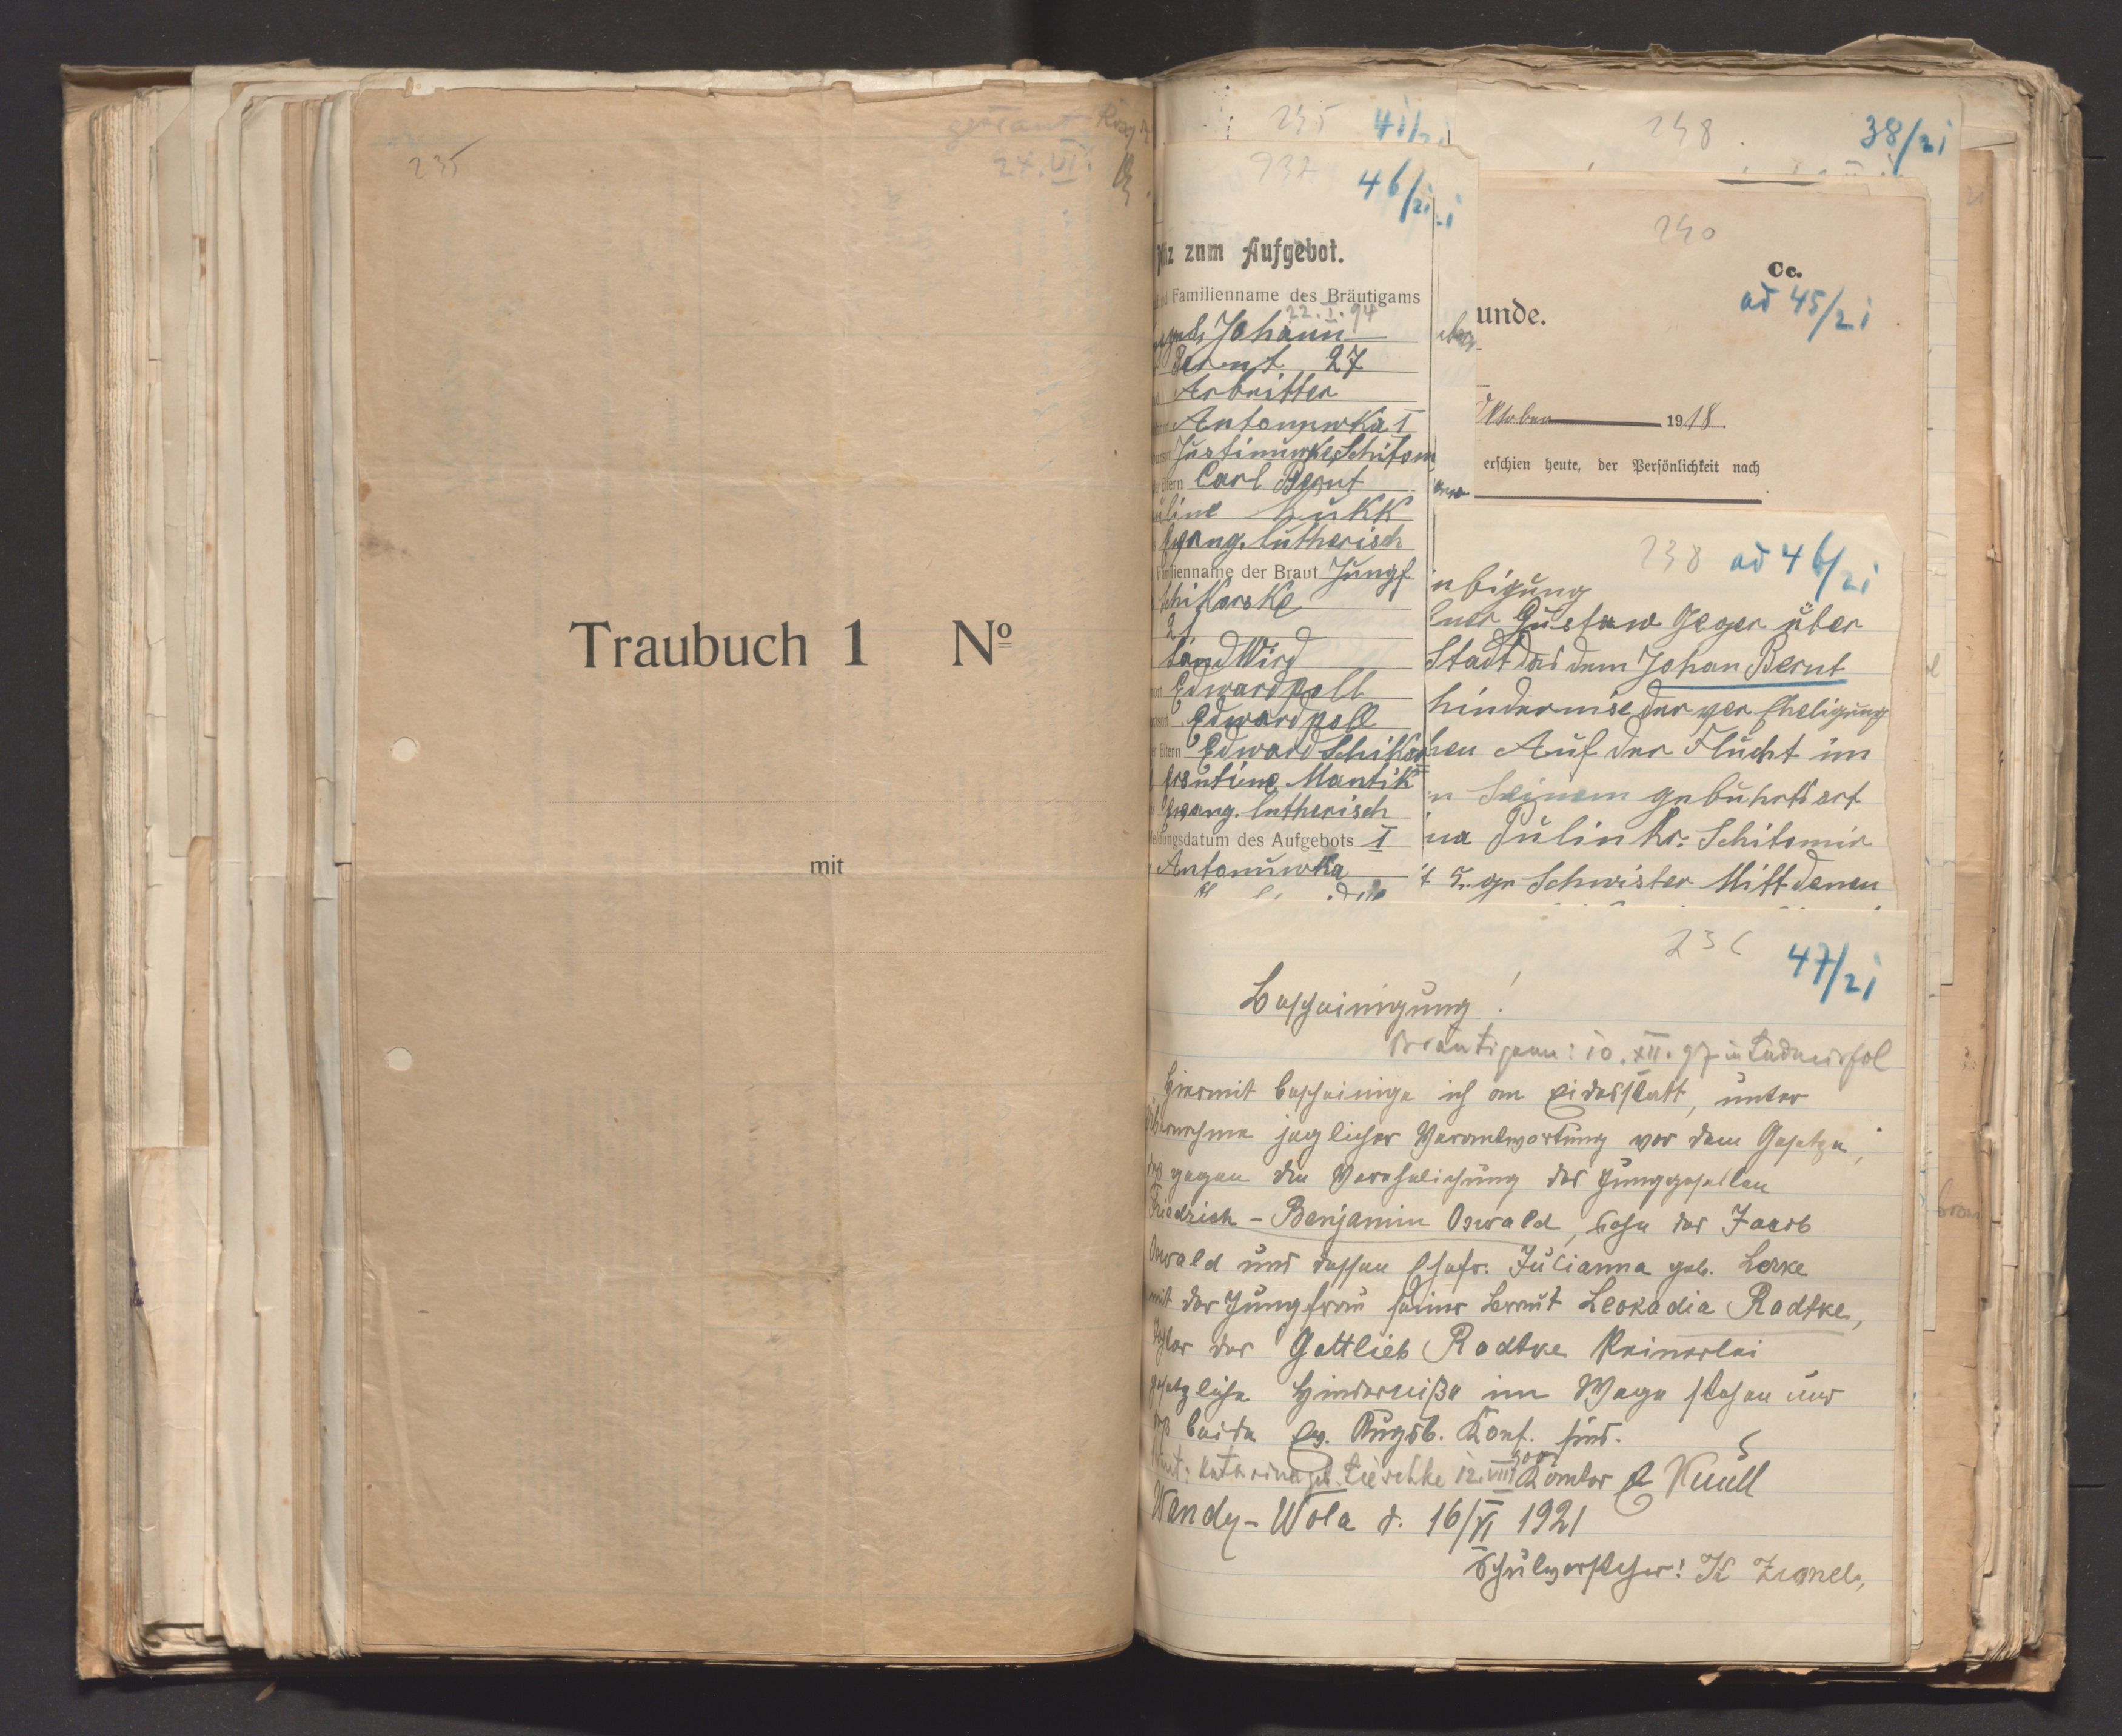 235
24. VI.
Traubuch 1 Nº
mit
245 41/21
248 38/21
46/21
240
Cc.
ad 45/21
zum Aufgebot.
Familienname des Bräutigams
22. I. 94
Johann
Bernt 27
Arbeitter
Antonuwka I
Justinuwka, Schitom
Eltern Carl Bernt
Kukk
Evang. lutherisch
Familienname der Braut Jungf
Schikorske
21
Land Wird
Edwardpoll
Edwardpoll
Eltern Edward Schikor
Mantik
Evang. lutherisch
Meldungsdatum des Aufgebots I
Antonuwka
unde.
Oktober 1918.
erschien heute, der Persönlichkeit nach
238 ad 46/21
Gustaw Jeger über
Stadt das dem Johan Bernt
hindernise der ver Eheligung
Auf der Flucht im
Seinem gebuhrtsort
Pulin Kr. Schitomir
Schwister Mitt denen
236 47/21
Bescheinigung!
Bräutigam: 10. XII. 97 in
Hiermit bescheinige ich an Eidesstatt, unter
jeglicher Verantwortung vor dem Gesetze,
gegen die Verehelichung des Junggesellen
Friedrich - Benjamin Oswald, Sohn des Jacob
Oswald und dessen Ehefr. Julianna geb. Lerke
mit der Jungfrau seiner Braut Leokadia Radtke,
der Gottlieb Radtke keinerlei
gesetzliche Hinderniße im Wege stehen und
beide ev. Augsb. Konf. sind.
Katarina geb. 12. VIII Kantor
Wandy-Wola d. 16/VI 1921
Schulvorsteher: